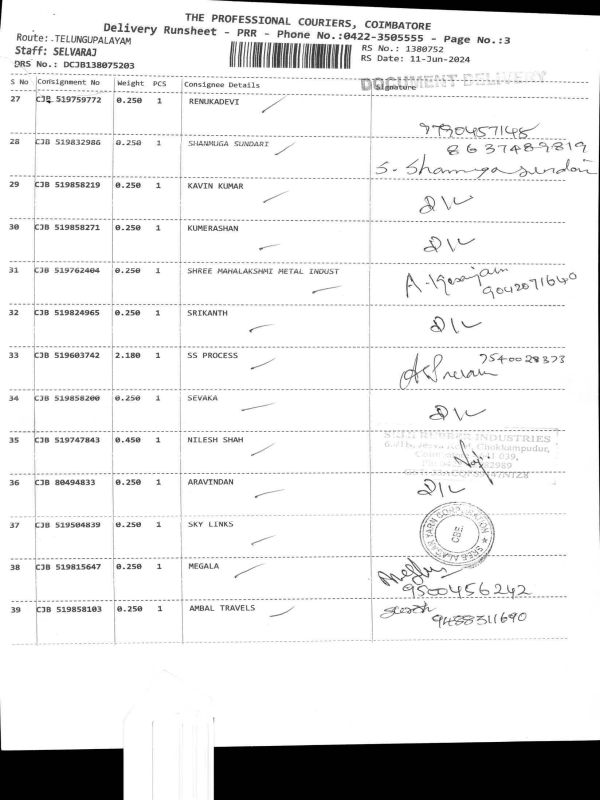 THE PROFESSIONAL COURIERS, COIMBATORE
Delivery Runsheet - PRR - Phone No.:0422-3505555 - Page No.:3
Route: TELUNGUPALAYAM
Staff: SELVARAJ
DRS No.: DCJB138075203
RS No.: 1380752
RS Date: 11-Jun-2024
DOCUMENT DELIVERY
S No Consignment No Weight PCS Consignee Details Signature
27 CJB 519759772 0.250 1 RENUKADEVI
9790457148
28 CJB 519832986 0.250 1 SHANMUGA SUNDARI 8637489819
S. Shanmuga Sundari
29 CJB 519858219 0.250 1 KAVIN KUMAR D/L
30 CJB 519858271 0.250 1 KUMERASHAN D/L
31 CJB 519762404 0.250 1 SHREE MAHALAKSHMI METAL INDUST
9042071640
32 CJB 519824965 0.250 1 SRIKANTH D/L
33 CJB 519603742 2.180 1 SS PROCESS 7540028373
34 CJB 519858200 0.250 1 SEVAKA D/L
35 CJB 519747843 0.450 1 NILESH SHAH
RUBBER INDUSTRIES
Chokkampudur,
36 CJB 80494833 0.250 1 ARAVINDAN D/L
37 CJB 519504839 0.250 1 SKY LINKS
YARN CORPORATION
CBE.
38 CJB 519815647 0.250 1 MEGALA
9500456242
39 CJB 519858103 0.250 1 AMBAL TRAVELS
9488311690